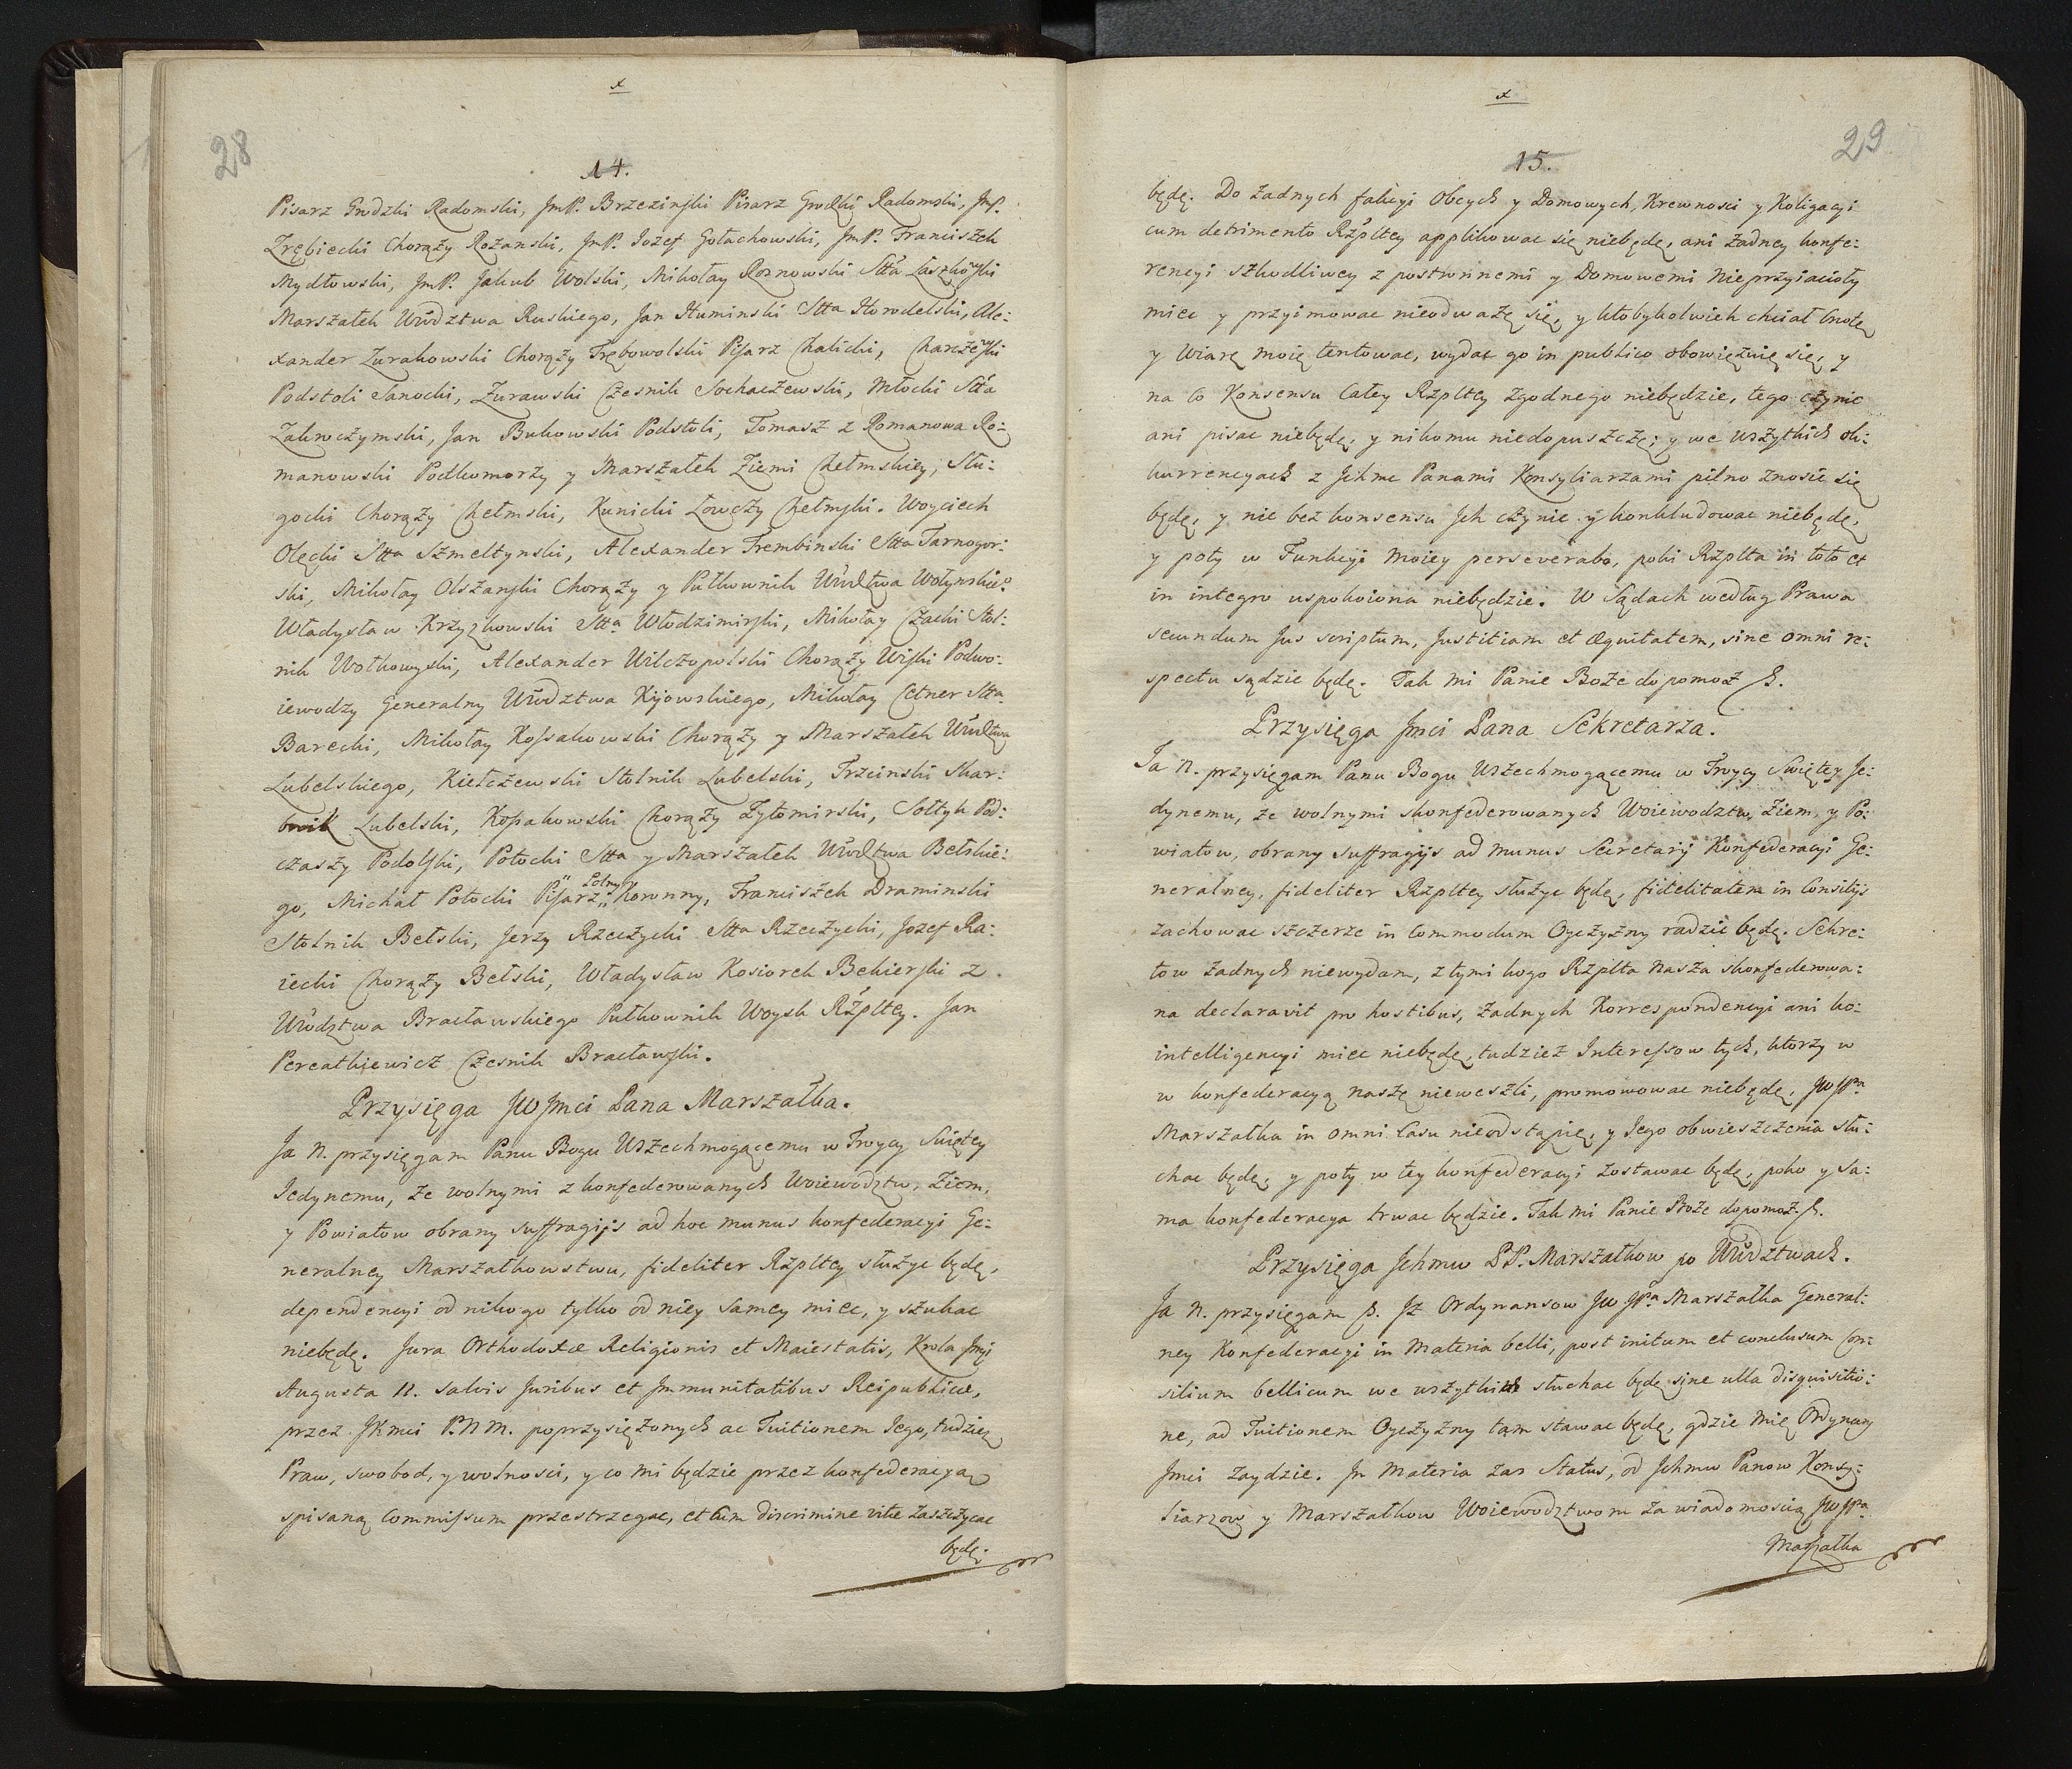 x
28
14.
Pisarz Grodzki Radomski, JmP. Brzezinski Pisarz Grodzki Radomski, JmP.
Zrębiecki Chorąży Rożanski, JmP. Jozef Gołachowski, JmP. Franciszek
Mydłowski, JmP. Jakub Wolski, Mikołay Roznowski Stta Łaszkowski
Marszałek Wwdztwa Ruskiego, Jan Huminski Stta Horodelski, Ale:
xander Zurakowski Chorąży Trębowolski Pisarz Halicki, Charzewski
Podstoli Sanocki, Zurawski Czesnik Sochaczewski, Młocki Stta
Zakroczymski, Jan Bukowski Podstoli, Tomasz z Romanowa Ro:
manowski Podkomorzy y Marszałek Ziemi Chełmskiey, Stu:
gocki Chorąży Chełmski, Kunicki Łowczy Chełmski. Woyciech
Olęcki Stta Szmeltynski, Alexander Trembinski Stta Tarnogor:
ski, Mikołay Olszanski Chorąży y Pułkownik Wwdztwa Wołynskieo
Władysław Krzyzkowski Stta Włodzimirski, Mikołay Czacki Stol:
nik Wołkowyski, Alexander Wilczopolski Chorąży Wiski Podwo:
iewodzy Generalny Wwdztwa Kijowskiego, Mikołay Cetner Stta
Barecki, Mikołay Kossakowski Chorąży y Marszałek Wwdztwa
Lubelskiego, Kiełczewski Stolnik Lubelski, Trzcinski Skar:
bnik Lubelski, Kossakowski Chorąży Zytomirski, Sołtyk Pod:
czaszy Podolski, Potocki Stta y Marszałek Wwdztwa Bełskie:
go, Michał Potocki Pisarz Polny Koronny, Franciszek Draminski
Stolnik Bełski, Jerzy Rzeczycki Stta Rzeczycki, Jozef Ra:
iecki Chorąży Bełski, Władysław Kosiorek Bekierski z
Wwdztwa Bracławskiego Pułkownik Woysk Rzpltey. Jan
Pereatkiewicz Czesnik Bracławski.
Przysięga JW Jmci Pana Marszałka.
Ja N. przysięgam Panu Bogu Wszechmogącemu w Troycy Swiętey
Jedynemu, ze wolnymi zkonfederowanych Woiewodztw, Ziem,
y Powiatow obrany suffragijs ad hoc munus konfederacyi Ge:
neralney Marszałkowstwu, fideliter Rzpltey służyc będę,
dependencyi od nikogo tylko od niey samey miec, y szukac
niebędę. Jura Orthodoxæ Religionis et Maiestatis, Krola Jmci
Augusta II. salvis Juribus et Jmmunitatibus Reipublicæ,
przez JKmci P.N.M. poprzysiężonych ac Tuitionem Jego, tudziez
Praw, swobod, y wolnosci, y co mi będzie przez konfederacyą
spisaną Commissum przestrzegac, et cum discrimine vitæ zaszczycac
będę.
x
29
15.
będę. Do żadnych fakcyi Obcych y Domowych, Krewnosci y Koligacyi
cum detrimento Rzpltey applikowac się niebędę, ani żadney konfe:
rencyi szkodliwey z postronnemi y Domowemi Nieprzyiacioły
miec y przyimowac nieodważę się, y ktobykolwiek chciał Cnotę
y Wiarę moię tentowac, wydac go in publico obowięzuię się, y
na co Konsensu Całey Rzpltey zgodnego niebędzie, tego czynic
ani pisac niebędę, y nikomu niedopuszczę; y we wszytkich ok:
kurrencyach z Jchmc Panami Konsyliarzami pilno znosic się
będę, y nic bez konsensu Jch czynic y konkludowac niebędę,
y poty w Funkcyi moiey perseverabo, poki Rzplta in toto et
in integro uspokoiona niebędzie. W Sądach według Prawa
secundum Jus scriptum, Justitiam et Æquitatem, sine omni re:
spectu sądzic będę. Tak mi Panie Boże dopomoż &.
Przysięga Jmci Pana Sekretarza.
Ja N. przysięgam Panu Bogu Wszechmogącemu w Troycy Swiętey Je:
dynemu, że wolnymi skonfederowanych Woiewodztw, Ziem, y Po:
wiatow, obrany suffragijs ad munus Secretarij Konfederacyi Ge:
neralney, fideliter Rzpltey służyc będę, fidelitatem in Consilijs
zachowac szczerze in Commodum Oyczyzny radzic będę. Sekre:
tow żadnych niewydam, z tymi kogo Rzplta Nasza skonfederowa:
na declaravit pro hostibus, żadnych Korrespondencyi ani ko:
intelligencyi miec niebędę, tudziez Interessow tych, ktorzy w
w konfederacyą naszę nieweszli, promowowac niebędę, JW JPa
Marszałka in omni casu nieodstąpię, y Jego obwieszczenia słu:
chac będę, y poty w tey konfederacyi zostawac będę, poko y Sa:
ma konfederacya trwac będzie. Tak mi Panie Boże dopomoż. &.
Przysięga Jchmw PP. Marszałkow po Wwdztwach.
Ja N. przysięgam &. Jz Ordynansow JW JPa Marszałka General:
ney Konfederacyi in materia belli, post initum et conclusum Con:
silium bellicum we wszytkich słuchac będę sine ulla disquisitio:
ne, ad Tuitionem Oyczyzny tam stawac będę, gdzie mię Ordynans
Jmci zaydzie. Jn materia zas Status, od Jchmw Panow Konsy:
liarzow y Marszałkow Woiewodztwom za wiadomoscią JW JPa
Marszałka